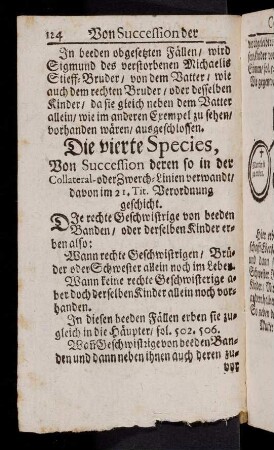 124 Von Succession der
In beeden obgesetzten Fällen/ wird
Sigmund des verstorbenen Michaelis
Stieff-Bruder/ von dem Vatter/ wie
auch dem rechten Bruder/ oder desselben
Kinder/ da sie gleich neben dem Vatter
allein/ wie im anderen Exempel zu sehen/
vorhanden wären/ ausgeschlossen.
Die vierte Species,
Von Succession deren so in der
Collateral-oder Zwerch-Linien verwandt/
davon im 21. Tit. Verordnung
geschicht.
DJe rechte Geschwistrige von beeden
Banden/ oder derselben Kinder er-
ben also:
Wann rechte Geschwistrigen/ Brü-
der oder Schwester allein noch im Leben.
Wann keine rechte Geschwisterige a-
ber doch derselben Kinder allein noch vor-
handen.
In diesen beeden Fällen erben sie zu-
gleich in die Häupter/ fol. 502. 506.
Wañ Geschwistrige von beeden Ban-
den und dann neben ihnen auch deren zu-
vor